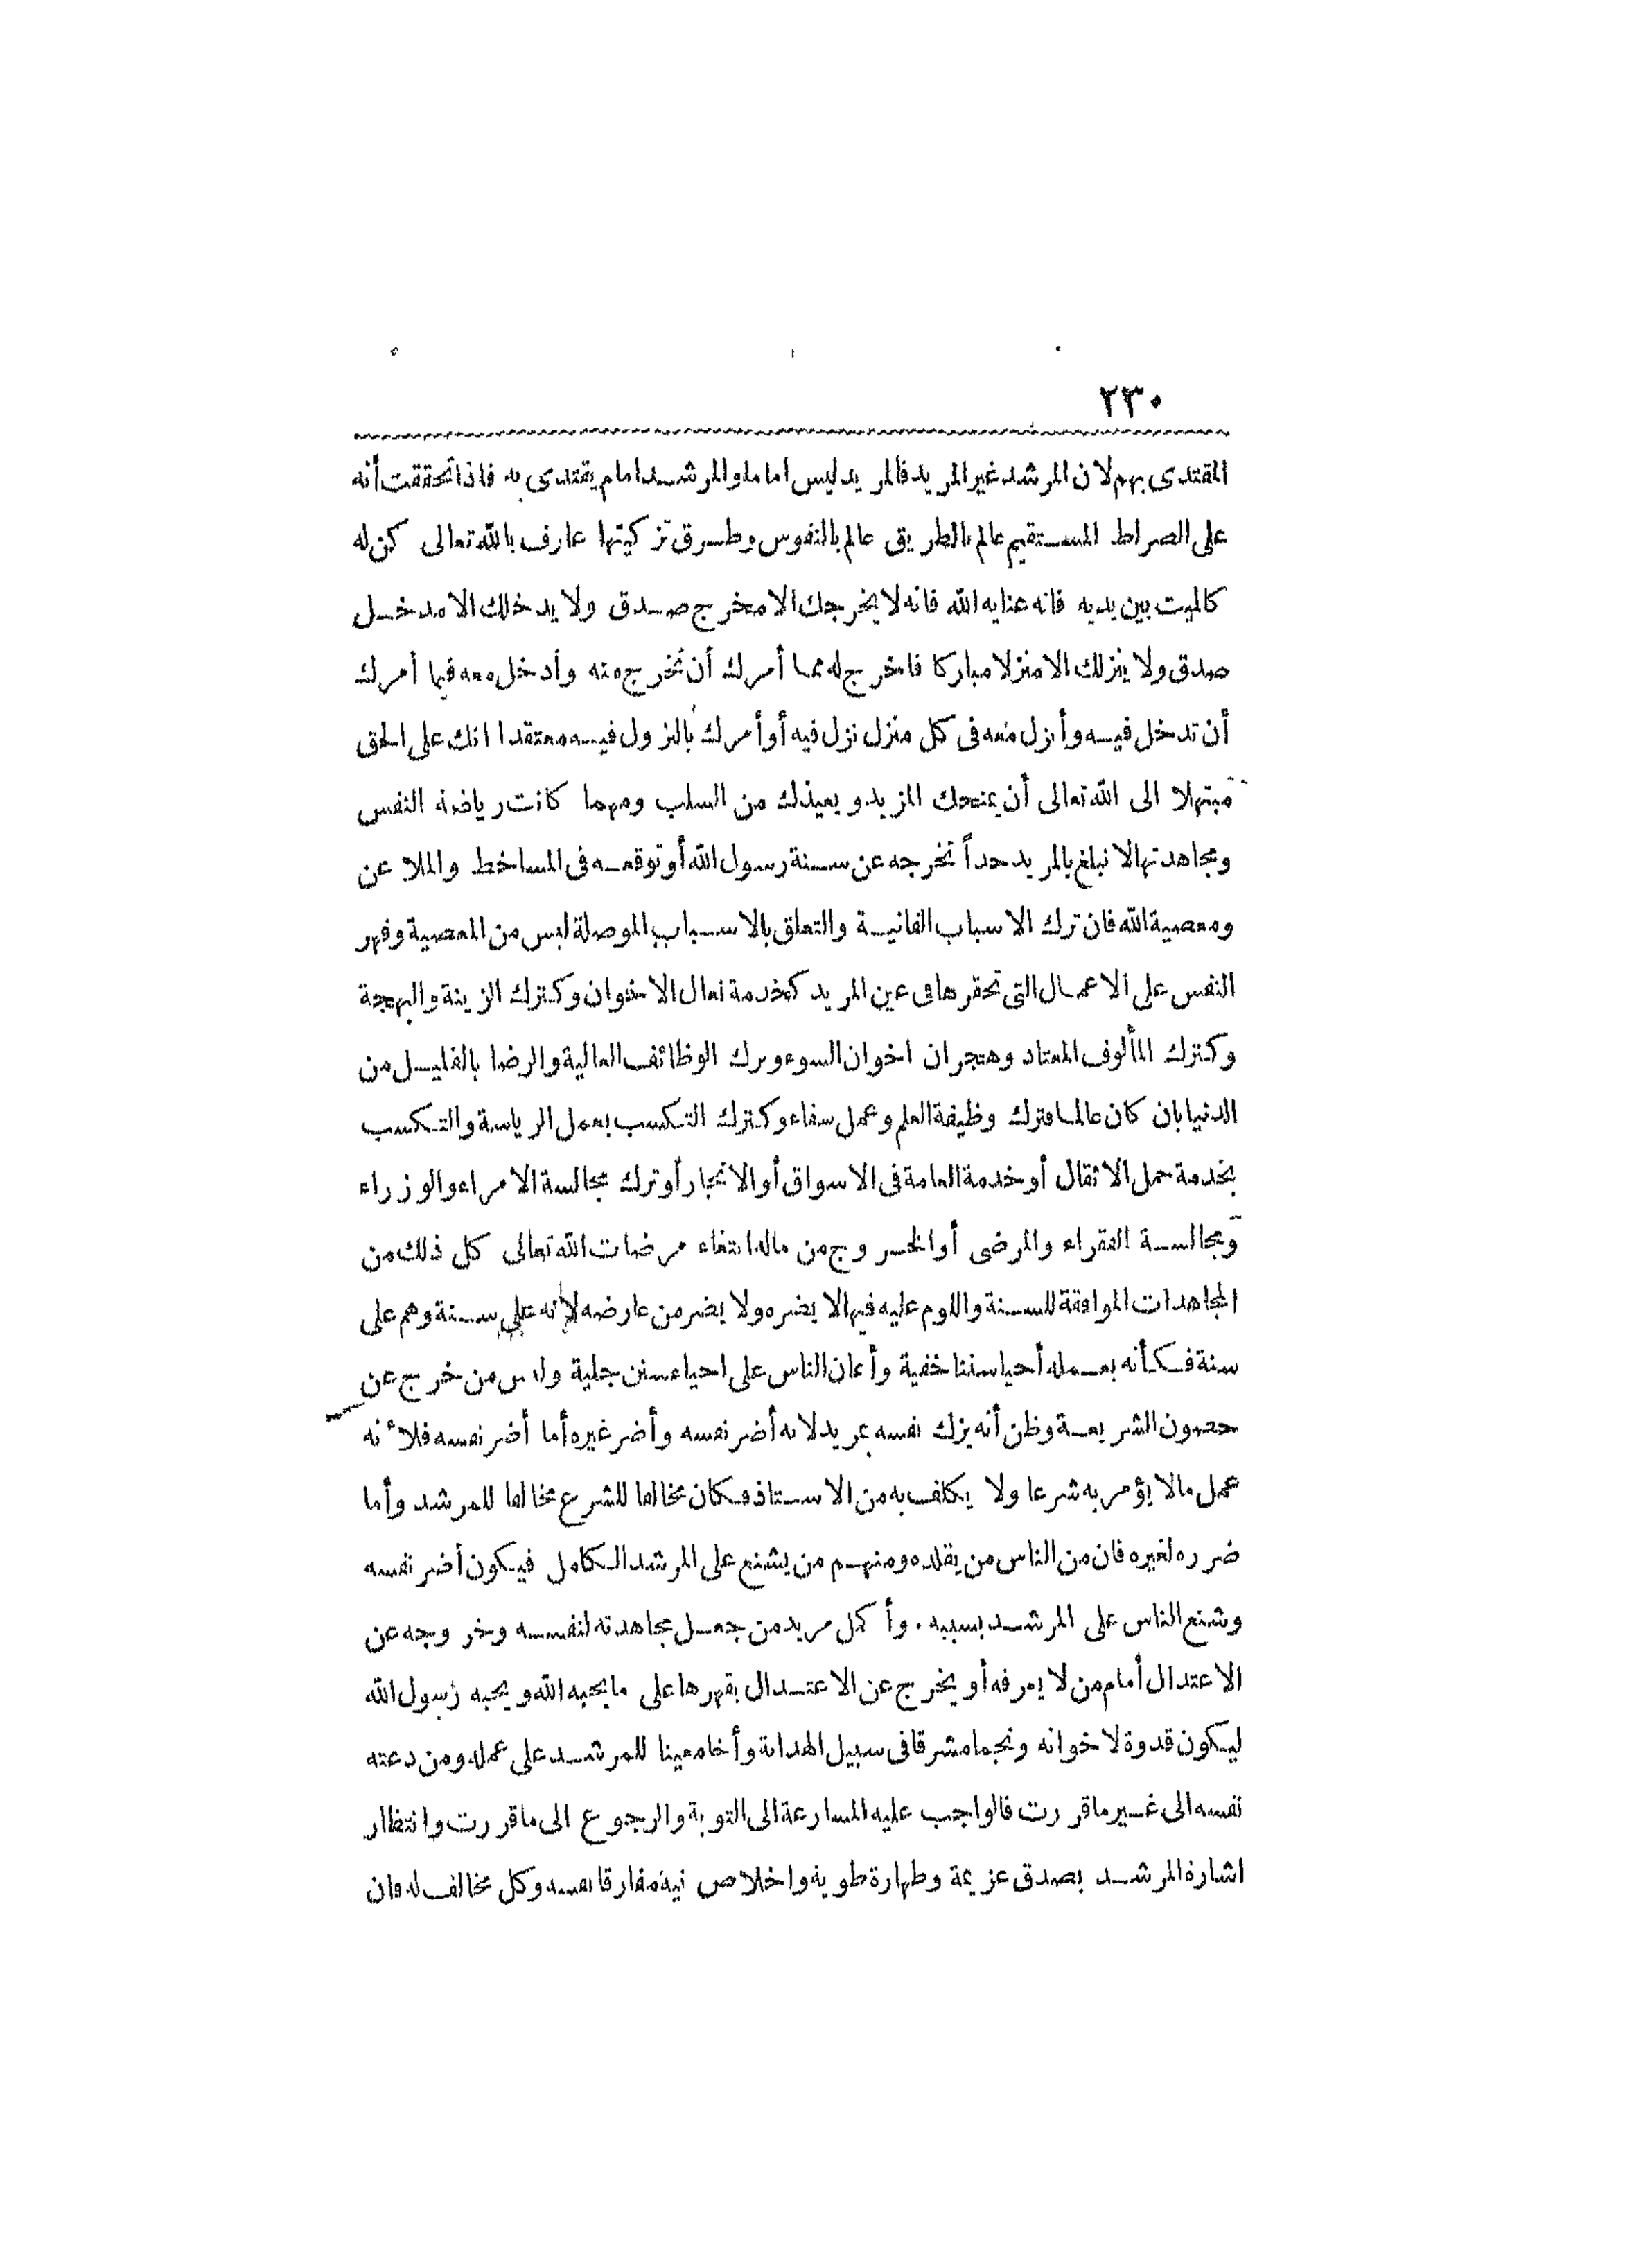 ٢٣٠
المقتدى بهم لان المرشد غير المريد فالمريد ليس اماما والمرشد امام يقتدى به فاذا تحققت أنه
على الصراط المستقيم عالم بالطريق عالم بالنفوس وطرق تزكيتها عارف بالله تعالى كن له
كالميت بين يديه فانه عنايه الله فانه لا يخرجك الا مخرج صدق ولا يدخلك الا مدخل
صدق ولا ينزلك الا منزلا مباركا فاخرج له مما أمرك أن تخرج منه وأدخل معه فيما أمرك
أن تدخل فيه وأنزل معه فى كل منزل نزل فيه أو أمرك بالنزول فيه معتقدا انك على الحق
مبتهلا الى الله تعالى أن يمنحك المزيد ويعيذك من السلب ومهما كانت رياضة النفس
ومجاهدتها لا تبلغ بالمريد حداً تخرجه عن سنة رسول الله أو توقعه فى المساخط والملا عن
ومعصية الله فان ترك الاسباب الفانية والتعلق بالاسباب الموصلة ليس من المعصية وقهر
النفس على الاعمال التى تحقرها فى عين المريد كخدمة نعال الاخوان وكترك الزينة والبهجة
وكترك المألوف المعتاد وهجران اخوان السوء وترك الوظائف العالية والرضا بالقليل من
الدنيا بان كان عالما فترك وظيفة العلم وعمل سقاء وكترك التكسب بعمل الرياسة والتكسب
بخدمة حمل الاثقال أو خدمة العامة فى الاسواق أو الاتجار أو ترك مجالسة الامراء والوزراء
ومجالسة الفقراء والمرضى أو الخروج من ماله ابتغاء مرضات الله تعالى كل ذلك من
المجاهدات الموافقة للسنة واللوم عليه فيها لا يضره ولا يضر من عارضه لانه على سنة وهم على
سنة فكأنه بعمله أحيا سننا خفية وأعان الناس على احياء سنن جلية وليس من خرج عن
حصون الشريعة وظن أنه يزك نفسه بمريد لانه أضر نفسه وأضر غيره أما أضر نفسه فلأنه
عمل مالا يؤمر به شرعا ولا يكلف به من الاستاذ فكان مخالفا للشرع مخالفا للمرشد وأما
ضرره لغيره فان من الناس من يقلده ومنهم من يشنع على المرشد الكامل فيكون أضر نفسه
وشنع الناس على المرشد بسببه . وأكمل مريد من جعل مجاهدته لنفسه وخروجه عن
الاعتدال أمام من لا يعرفه أو يخرج عن الاعتدال بقهرها على ما يحبه الله ويحبه رسول الله
ليكون قدوة لاخوانه ونجما مشرقا فى سبيل الهداية وأخا معينا للمرشد على عمله ومن دعته
نفسه الى غير ما قررت فالواجب عليه المسارعة الى التوبة والرجوع الى ما قررت وانتظار
اشارة المرشد بصدق عزيمة وطهارة طوية واخلاص نية مفارقا نفسه وكل مخالف له فان